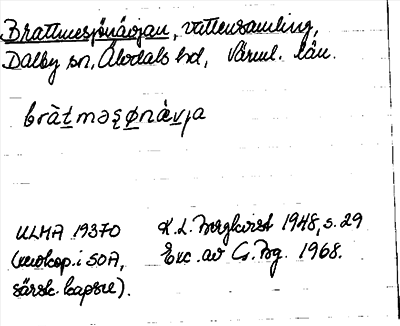 Brattmesjönävjan, vattensamling,
Dalby sn, Älvdals hd, Värml. län.
ULMA 19370 K. L. Bergkvist 1948, s. 29
(mikrokop. i SOA, Exc. av G. Bg. 1968.
särsk. kapsel).